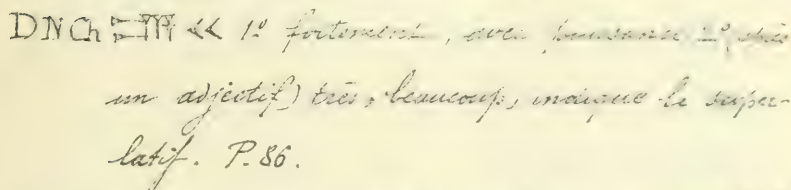 DNCh 1º fortement, avec puissance 2º (après
un adjectif) très, beaucoup, indique le super-
latif. P. 86.